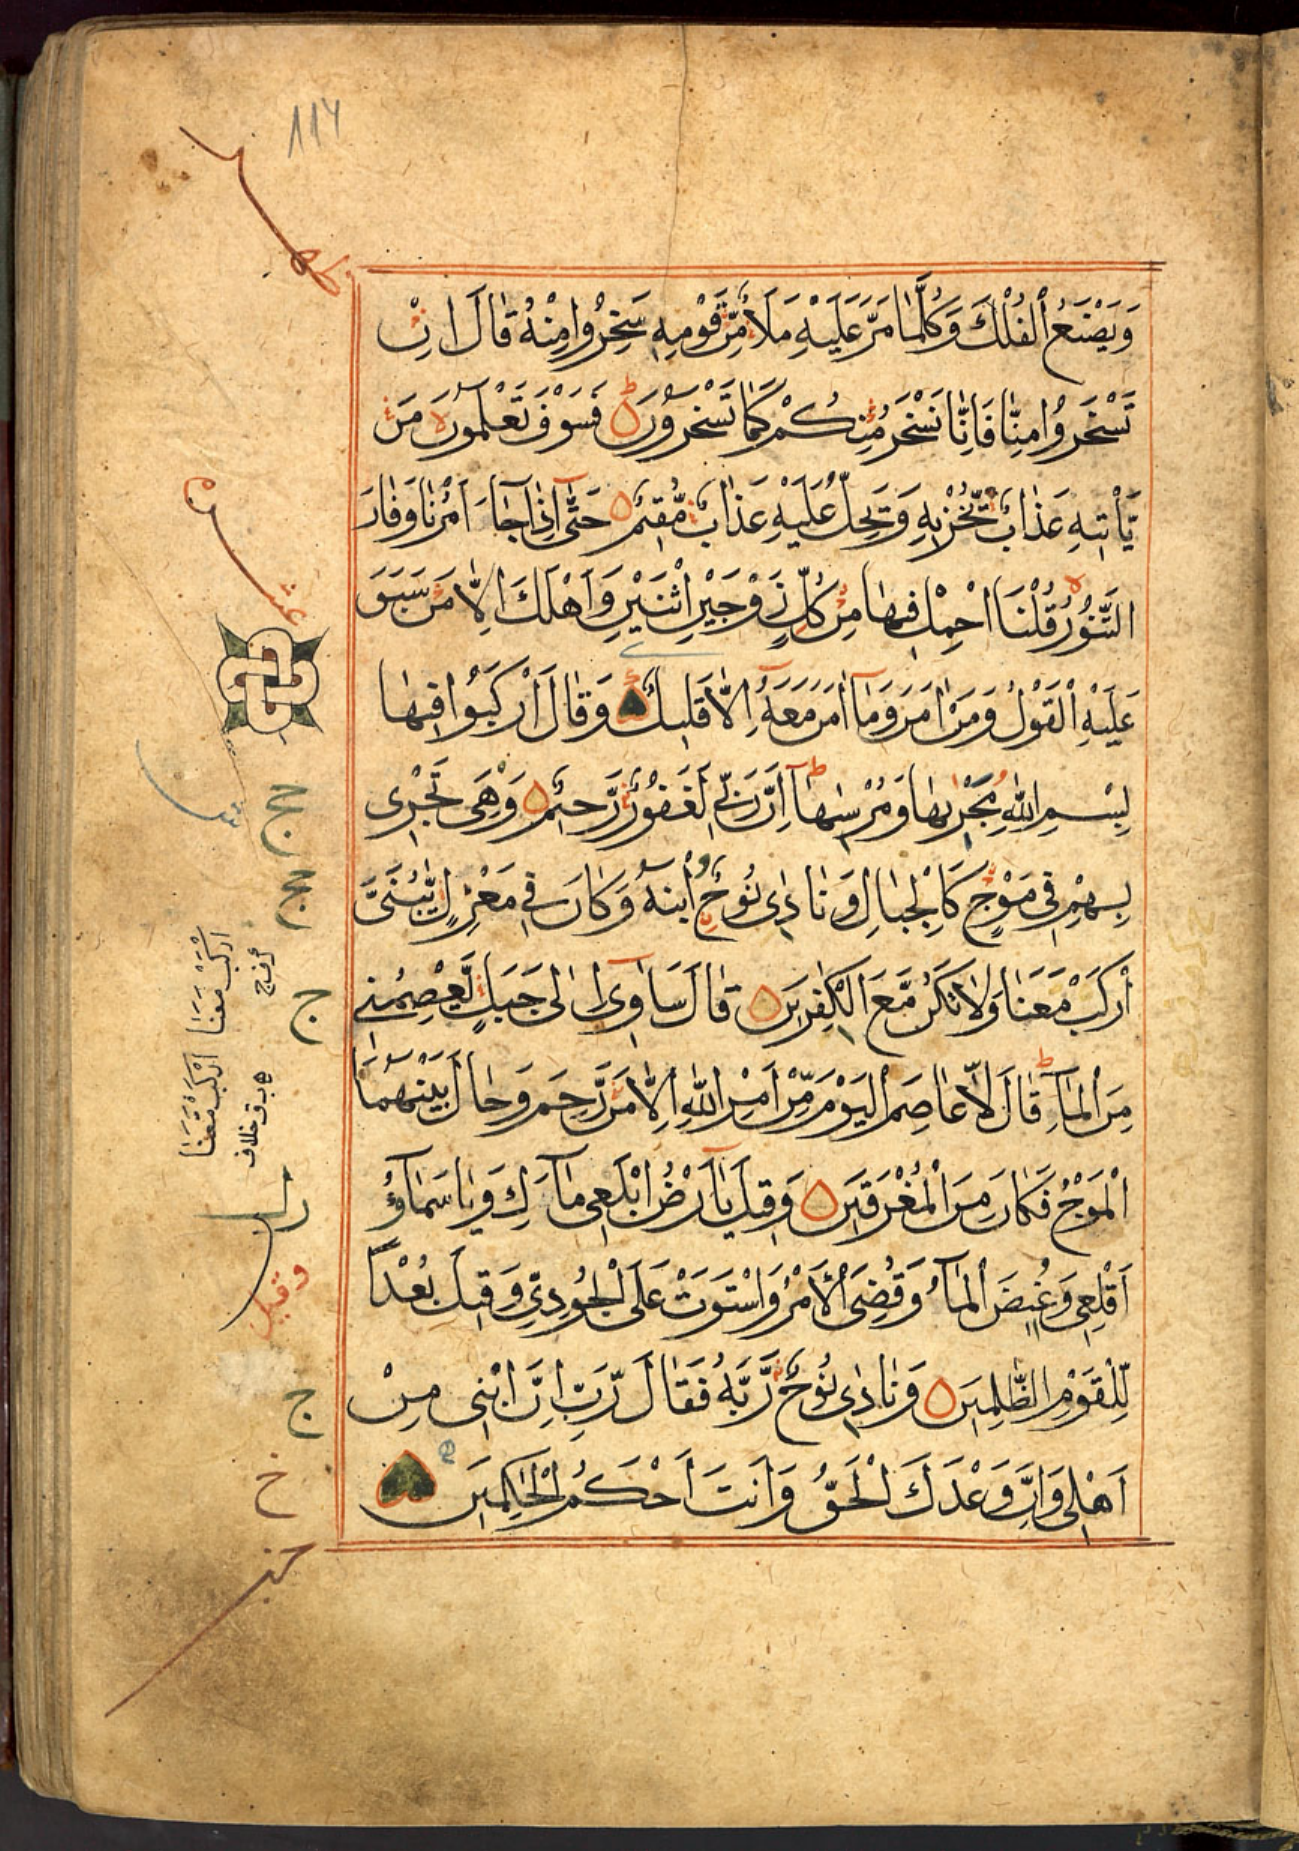 ١١٧
وَيَصْنَعُ الْفُلْكَ وَكُلَّمَا مَرَّ عَلَيْهِ مَلَأٌ مِّن قَوْمِهِ سَخِرُوا مِنْهُ قَالَ اِنْ
تَسْخَرُوا مِنَّا فَاِنَّا نَسْخَرُ مِنكُمْ كَمَا تَسْخَرُونَ ط فَسَوْفَ تَعْلَمُونَ لا مَن
يَّأْتِيهِ عَذَابٌ يُّخْزِيهِ وَيَحِلُّ عَلَيْهِ عَذَابٌ مُّقِيمٌ حَتّٰى اِذَا جَآءَ اَمْرُنَا وَفَارَ
التَّنُّورُ لا قُلْنَا احْمِلْ فِيهَا مِن كُلٍّ زَوْجَيْنِ اثْنَيْنِ وَاَهْلَكَ اِلَّا مَن سَبَقَ
عَلَيْهِ الْقَوْلُ وَمَنْ اٰمَنَ وَمَآ اٰمَنَ مَعَهُ اِلَّا قَلِيلٌ وَقَالَ ارْكَبُوا فِيهَا
بِسْمِ اللّٰهِ مَجْرٰىهَا وَمُرْسٰىهَا ط اِنَّ رَبِّي لَغَفُورٌ رَّحِيمٌ وَهِيَ تَجْرِى
بِهِمْ فِي مَوْجٍ كَالْجِبَالِ وَنَادٰى نُوحٌ ابْنَهُ وَكَانَ فِي مَعْزِلٍ يّٰبُنَيَّ
ارْكَبْ مَعَنَا وَلَا تَكُنْ مَّعَ الْكٰفِرِينَ قَالَ سَاٰوِىٓ اِلٰى جَبَلٍ يَّعْصِمُنِي
مِنَ الْمَآءِ ط قَالَ لَا عَاصِمَ الْيَوْمَ مِنْ اَمْرِ اللّٰهِ اِلَّا مَن رَّحِمَ وَحَالَ بَيْنَهُمَا
الْمَوْجُ فَكَانَ مِنَ الْمُغْرَقِينَ وَقِيلَ يَآ اَرْضُ ابْلَعِى مَآءَكِ وَيَا سَمَآءُ
اَقْلِعِى وَغِيضَ الْمَآءُ وَقُضِىَ الْاَمْرُ وَاسْتَوَتْ عَلَى الْجُودِيِّ وَقِيلَ بُعْدًا
لِّلْقَوْمِ الظّٰلِمِينَ وَنَادٰى نُوحٌ رَّبَّهُ فَقَالَ رَبِّ اِنَّ ابْنِى مِنْ
اَهْلِى وَاِنَّ وَعْدَكَ الْحَقُّ وَاَنتَ اَحْكَمُ الْحَاكِمِينَ
ج
ارْكَبْ مَعَنَا
ارْكَبْ مَّعَنَا
خلاف
وقيل
ج
خ